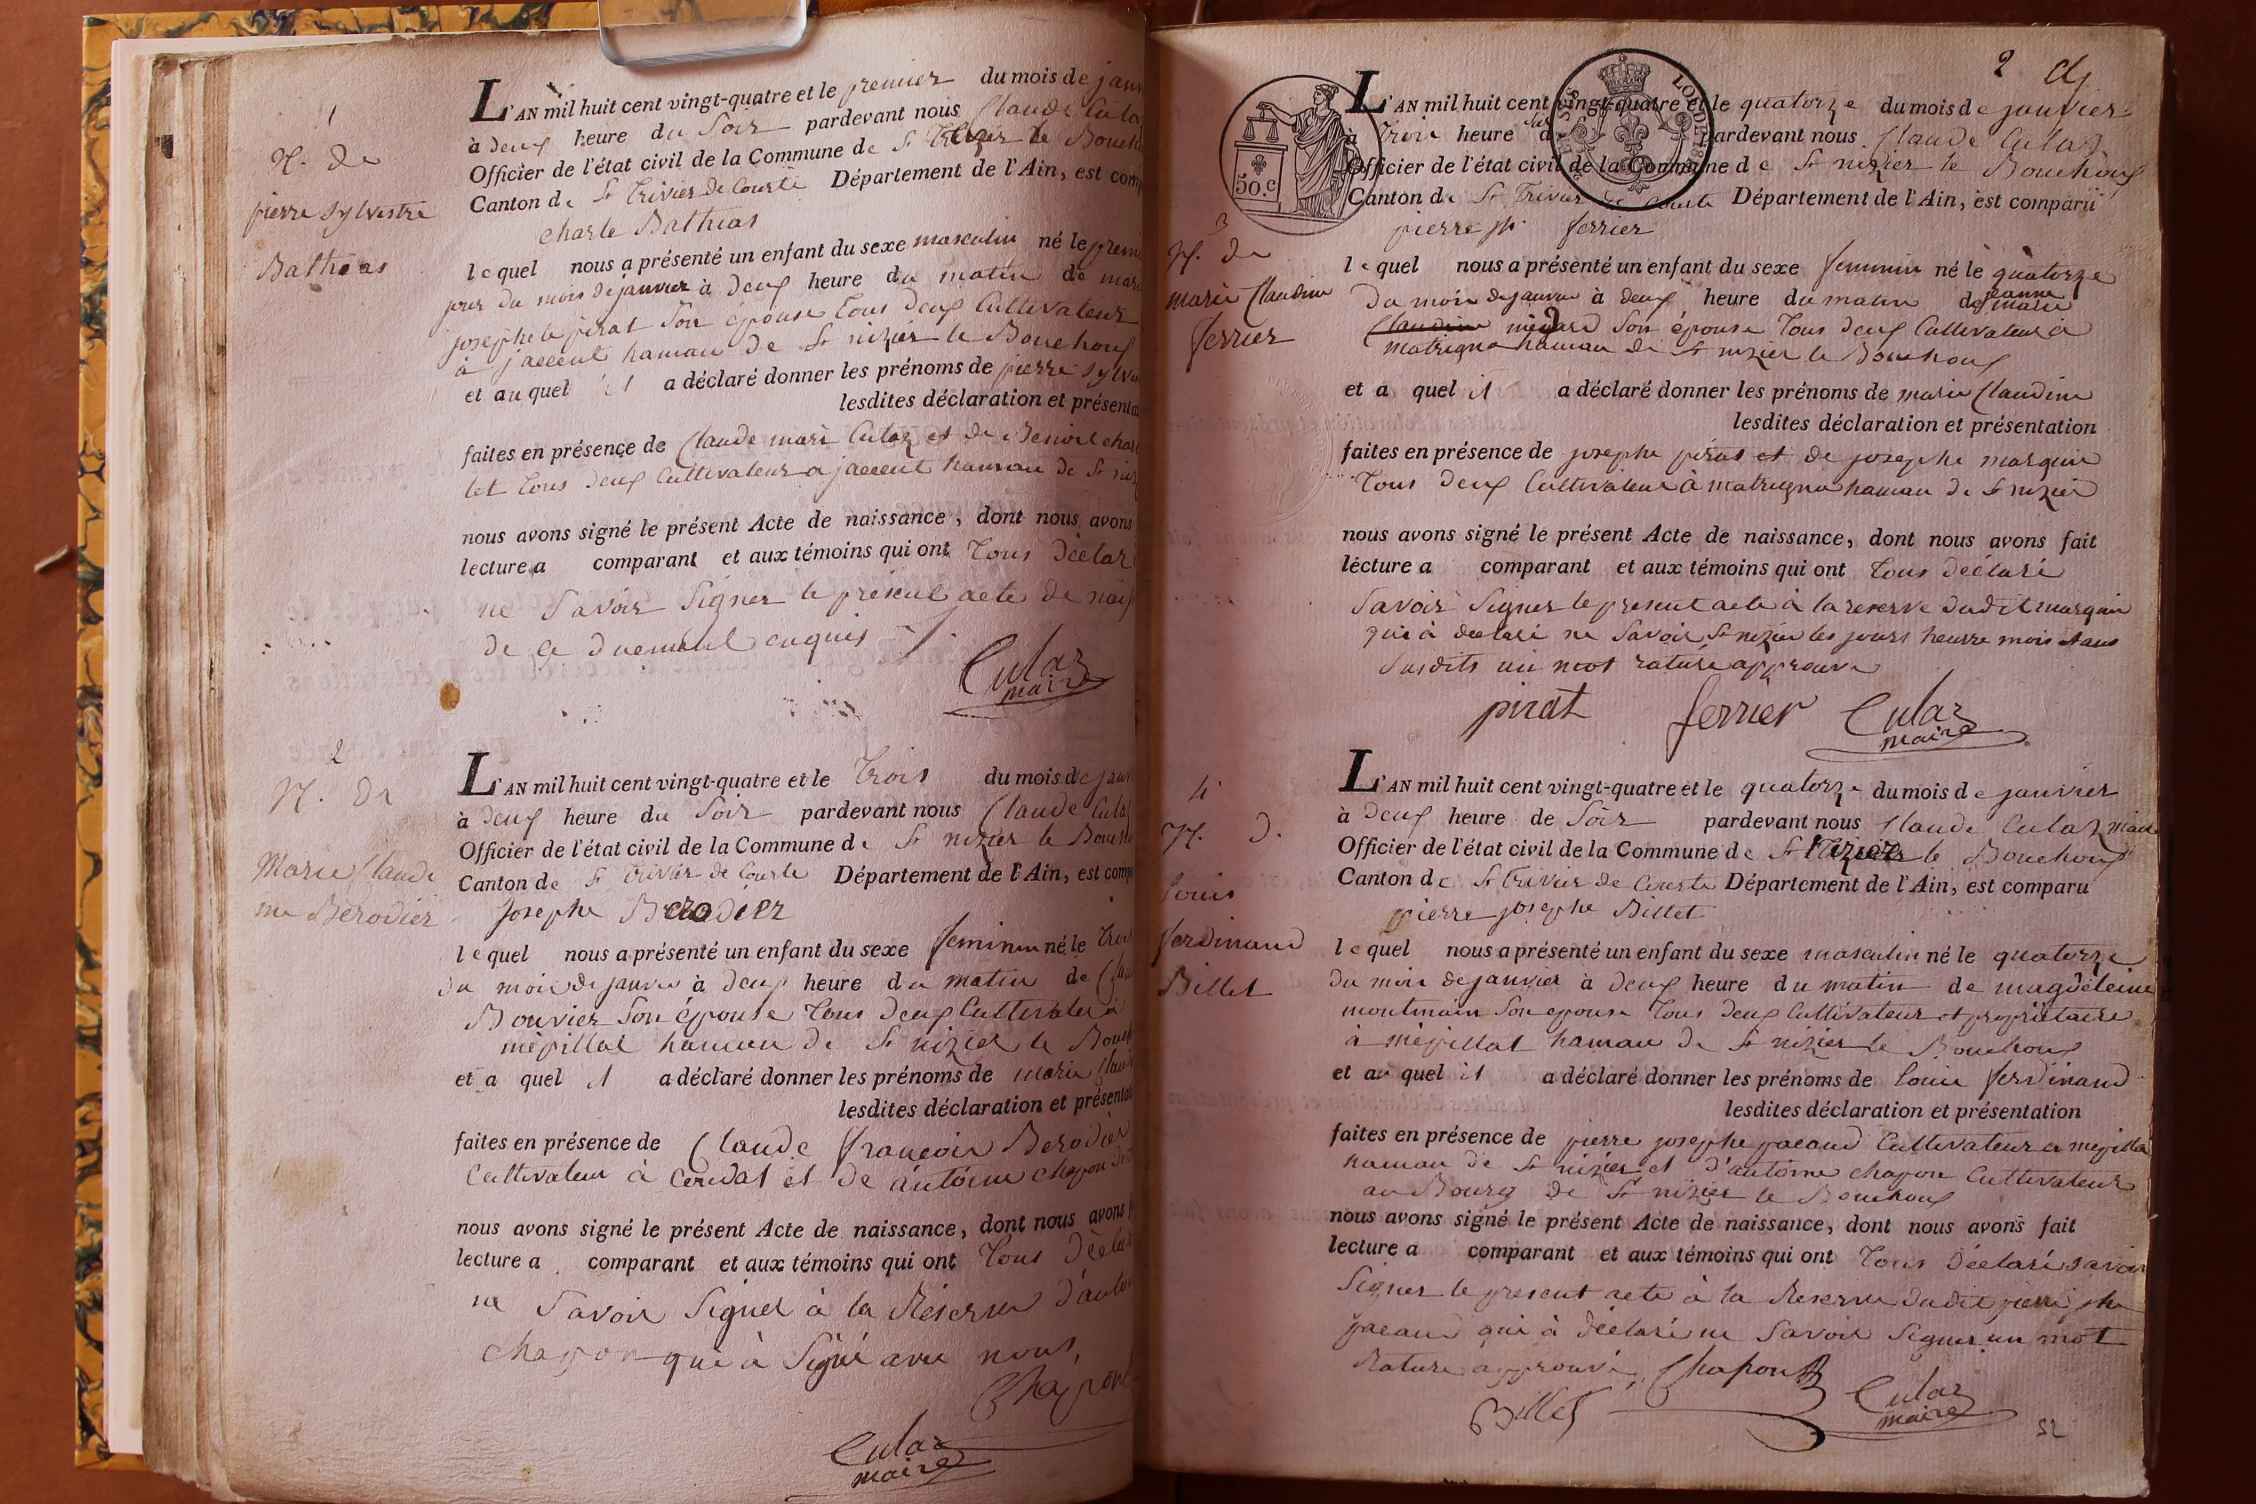 1
N. de
pierre sylvestre
Bathias
L'AN mil huit cent vingt-quatre et le premier du mois de janv
à deux heure du Soir pardevant nous Claude Cula
Officier de l'état civil de la Commune de St Nizier le Bouch
Canton de St Trivier de Courte Département de l'Ain, est com
charle Bathias
lequel nous a présenté un enfant du sexe masculin né le premi
jour du mois de janvier à deux heure du matin de mari
josephte pirat Son épouse Tous deux Cultivateur
à jaccent hamau de St nizier le Bouchoux
et au quel il a déclaré donner les prénoms de pierre Sylve
lesdites déclaration et présenta
faites en présence de Claude mari Culaz et de Benoit cha
let Tous deux Cultivateur a jaccent hamau de St niz
nous avons signé le présent Acte de naissance, dont nous avons
lecture a comparant et aux témoins qui ont Tous déclar
ne Savoir Signer le présent acte de nais
de ce duement enquis
Culaz
maire
2
N. De
Marie Claudi
ne Berodier
L'AN mil huit cent vingt-quatre et le Trois du mois de janv
à deux heure du Soir pardevant nous Claude Cula
Officier de l'état civil de la Commune de St nizier le Bouch
Canton de St Trivier de Courte Département de l'Ain, est comp
Josephe Berodier
lequel nous a présenté un enfant du sexe feminin né le Troi
du mois de janvier à deux heure du matin de Cla
Bouvier Son épouse Tous deux Cultivateur à
mépillat hamau de St nizier le Bouch
et a quel il a déclaré donner les prénoms de marie Claudi
lesdites déclaration et présenta
faites en présence de Claude françois Berodier
Cultivateur à Cordat et de antoine chapon
nous avons signé le présent Acte de naissance, dont nous avons
lecture a comparant et aux témoins qui ont Tous Décla
ne Savoir Signer à la Réserve d'anto
chapon qui à Signé avec nous,
Chapon
Culaz
maire
2
50.c
LOI DE
3
N. De
marie Claudine
ferrier
L'AN mil huit cent vingt-quatre et le quatorze du mois de janvier
à Trois heure du Soir pardevant nous Claude Culaz
Officier de l'état civil de la Commune de St nizier le Bouchoux
Canton de St Trivier de Courte Département de l'Ain, est comparu
pierre jh ferrier
lequel nous a présenté un enfant du sexe feminin né le quatorze
du mois de janvier à deux heure du matin de jeanne marie
Claudine mégard Son épouse Tous deux Cultivateur à
matrigna hamau de St nizier le Bouchoux
et a quel il a déclaré donner les prénoms de marie Claudine
lesdites déclaration et présentation
faites en présence de josephe pirat et de josephe marquin
Tous deux Cultivateur à matrigna hamau de St nizier
nous avons signé le présent Acte de naissance, dont nous avons fait
lecture a comparant et aux témoins qui ont Tous déclaré
Savoir Signer le present acte à la reserve dudit marquin
qui à declaré ne Savoir St nizier les jours heurre mois et ans
Susdits un mot raturé approuvé
pirat ferrier Culaz
maire
4
N. D.
louis
ferdinand
Billet
L'AN mil huit cent vingt-quatre et le quatorze du mois de janvier
à Deux heure de Soir pardevant nous Claude Culaz maire
Officier de l'état civil de la Commune de St Nizier le Bouchoux
Canton de St Trivier de Courte Département de l'Ain, est comparu
pierre josephe Billet
lequel nous a présenté un enfant du sexe masculin né le quatorze
du mois de janvier à deux heure du matin de magdeleine
moutmain Son epouse Tous deux Cultivateur et propriétaire
à mépillat hamau de St nizier le Bouchoux
et au quel il a déclaré donner les prénoms de louis ferdinand
lesdites déclaration et présentation
faites en présence de pierre josephe pacaud Cultivateur a mepilla
hamau de St nizier et d'antoine chapon Cultivateur
au Bourg de St nizier le Bouchoux
nous avons signé le présent Acte de naissance, dont nous avons fait
lecture a comparant et aux témoins qui ont Tous Déclaré savoir
Signer le present acte à la Reserve dudit pierre jhe
pacaud qui à déclaré ne Savoir Signer un mot
Raturé approuvé
Chapon
Billet
Culaz
maire
52